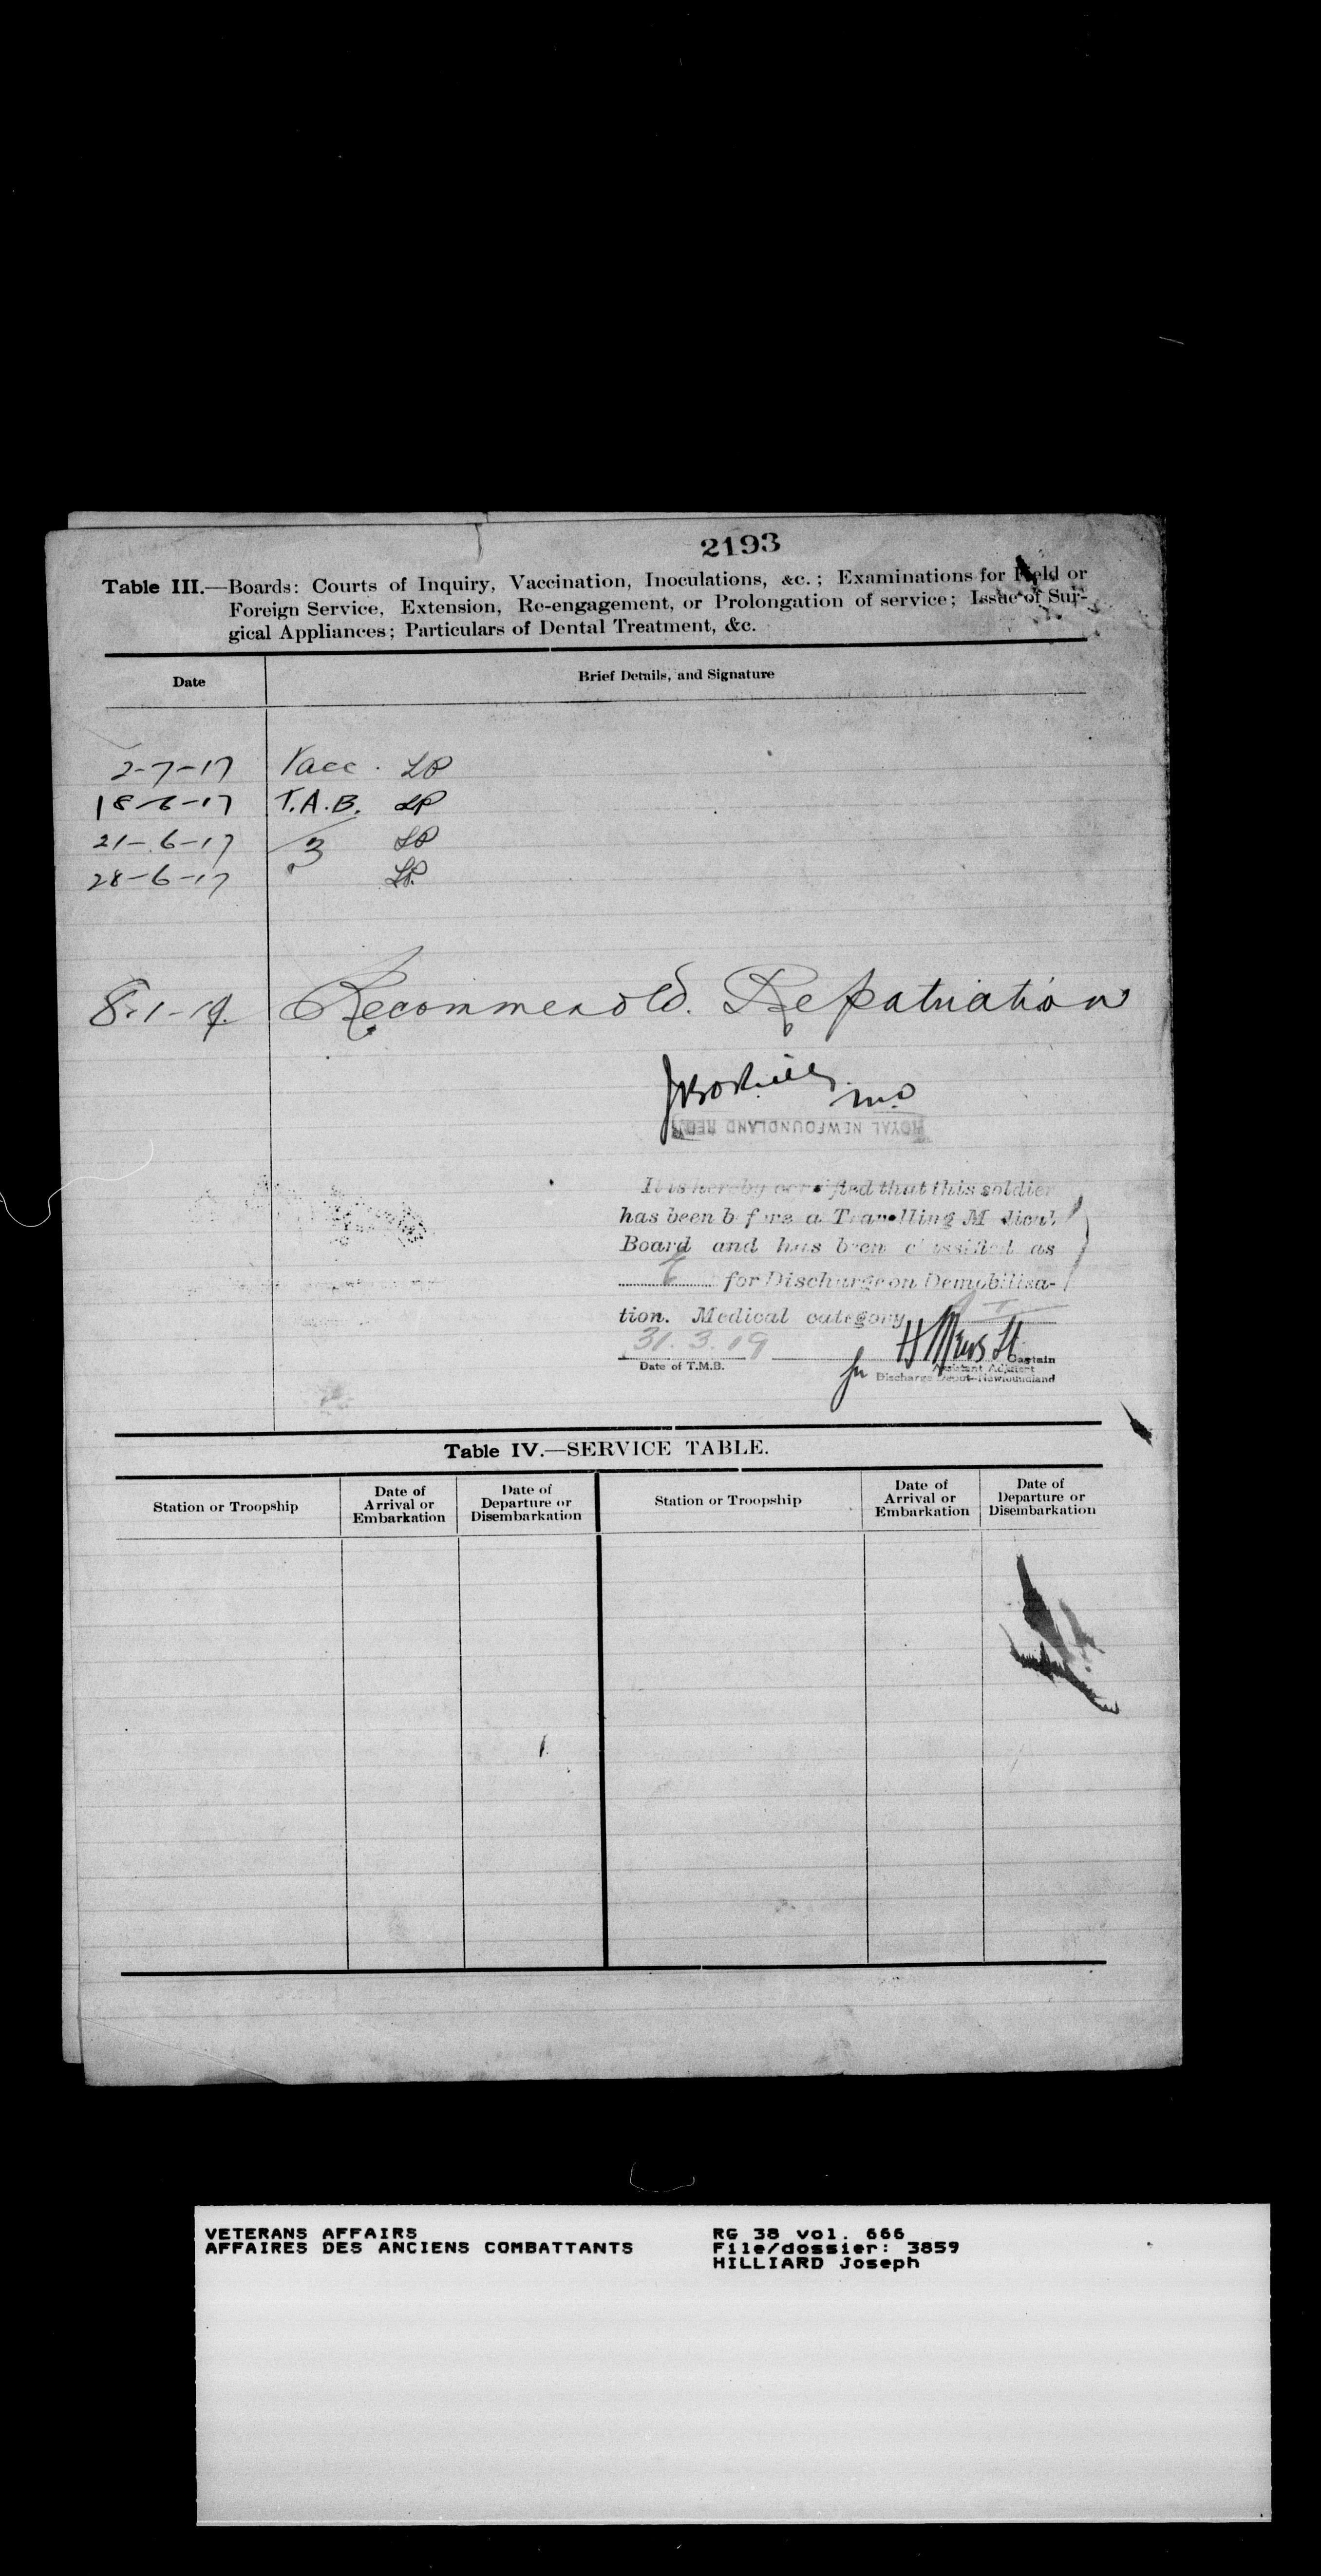 2193
Table III.—Boards: Courts of Inquiry, Vaccination, Inoculations, &c.; Examinations for Field or
Foreign Service, Extension, Re-engagement, or Prolongation of service; Issue of Sur-
gical Appliances; Particulars of Dental Treatment, &c.
Date Brief Details, and Signature
2-7-17 Vacc. LP
18-6-17 T.A.B. LP
21-6-17 3 LP
28-6-17 LP.
8-1-19. Recommend. Repatriation
M.O
ROYAL NEWFOUNDLAND REGT
It is hereby certified that this soldier
has been before a Travelling Medical
Board and has been classified as
for Discharge on Demobilisa-
tion. Medical category
31.3.19
Date of T.M.B. for Captain
Assistant Adjutant
Discharge Depot-Newfoundland
Table IV.—SERVICE TABLE.
Station or Troopship Date of Arrival or Embarkation Date of Departure or Disembarkation Station or Troopship Date of Arrival or Embarkation Date of Departure or Disembarkation
VETERANS AFFAIRS RG 38 vol. 666
AFFAIRES DES ANCIENS COMBATTANTS File/dossier: 3859
HILLIARD Joseph